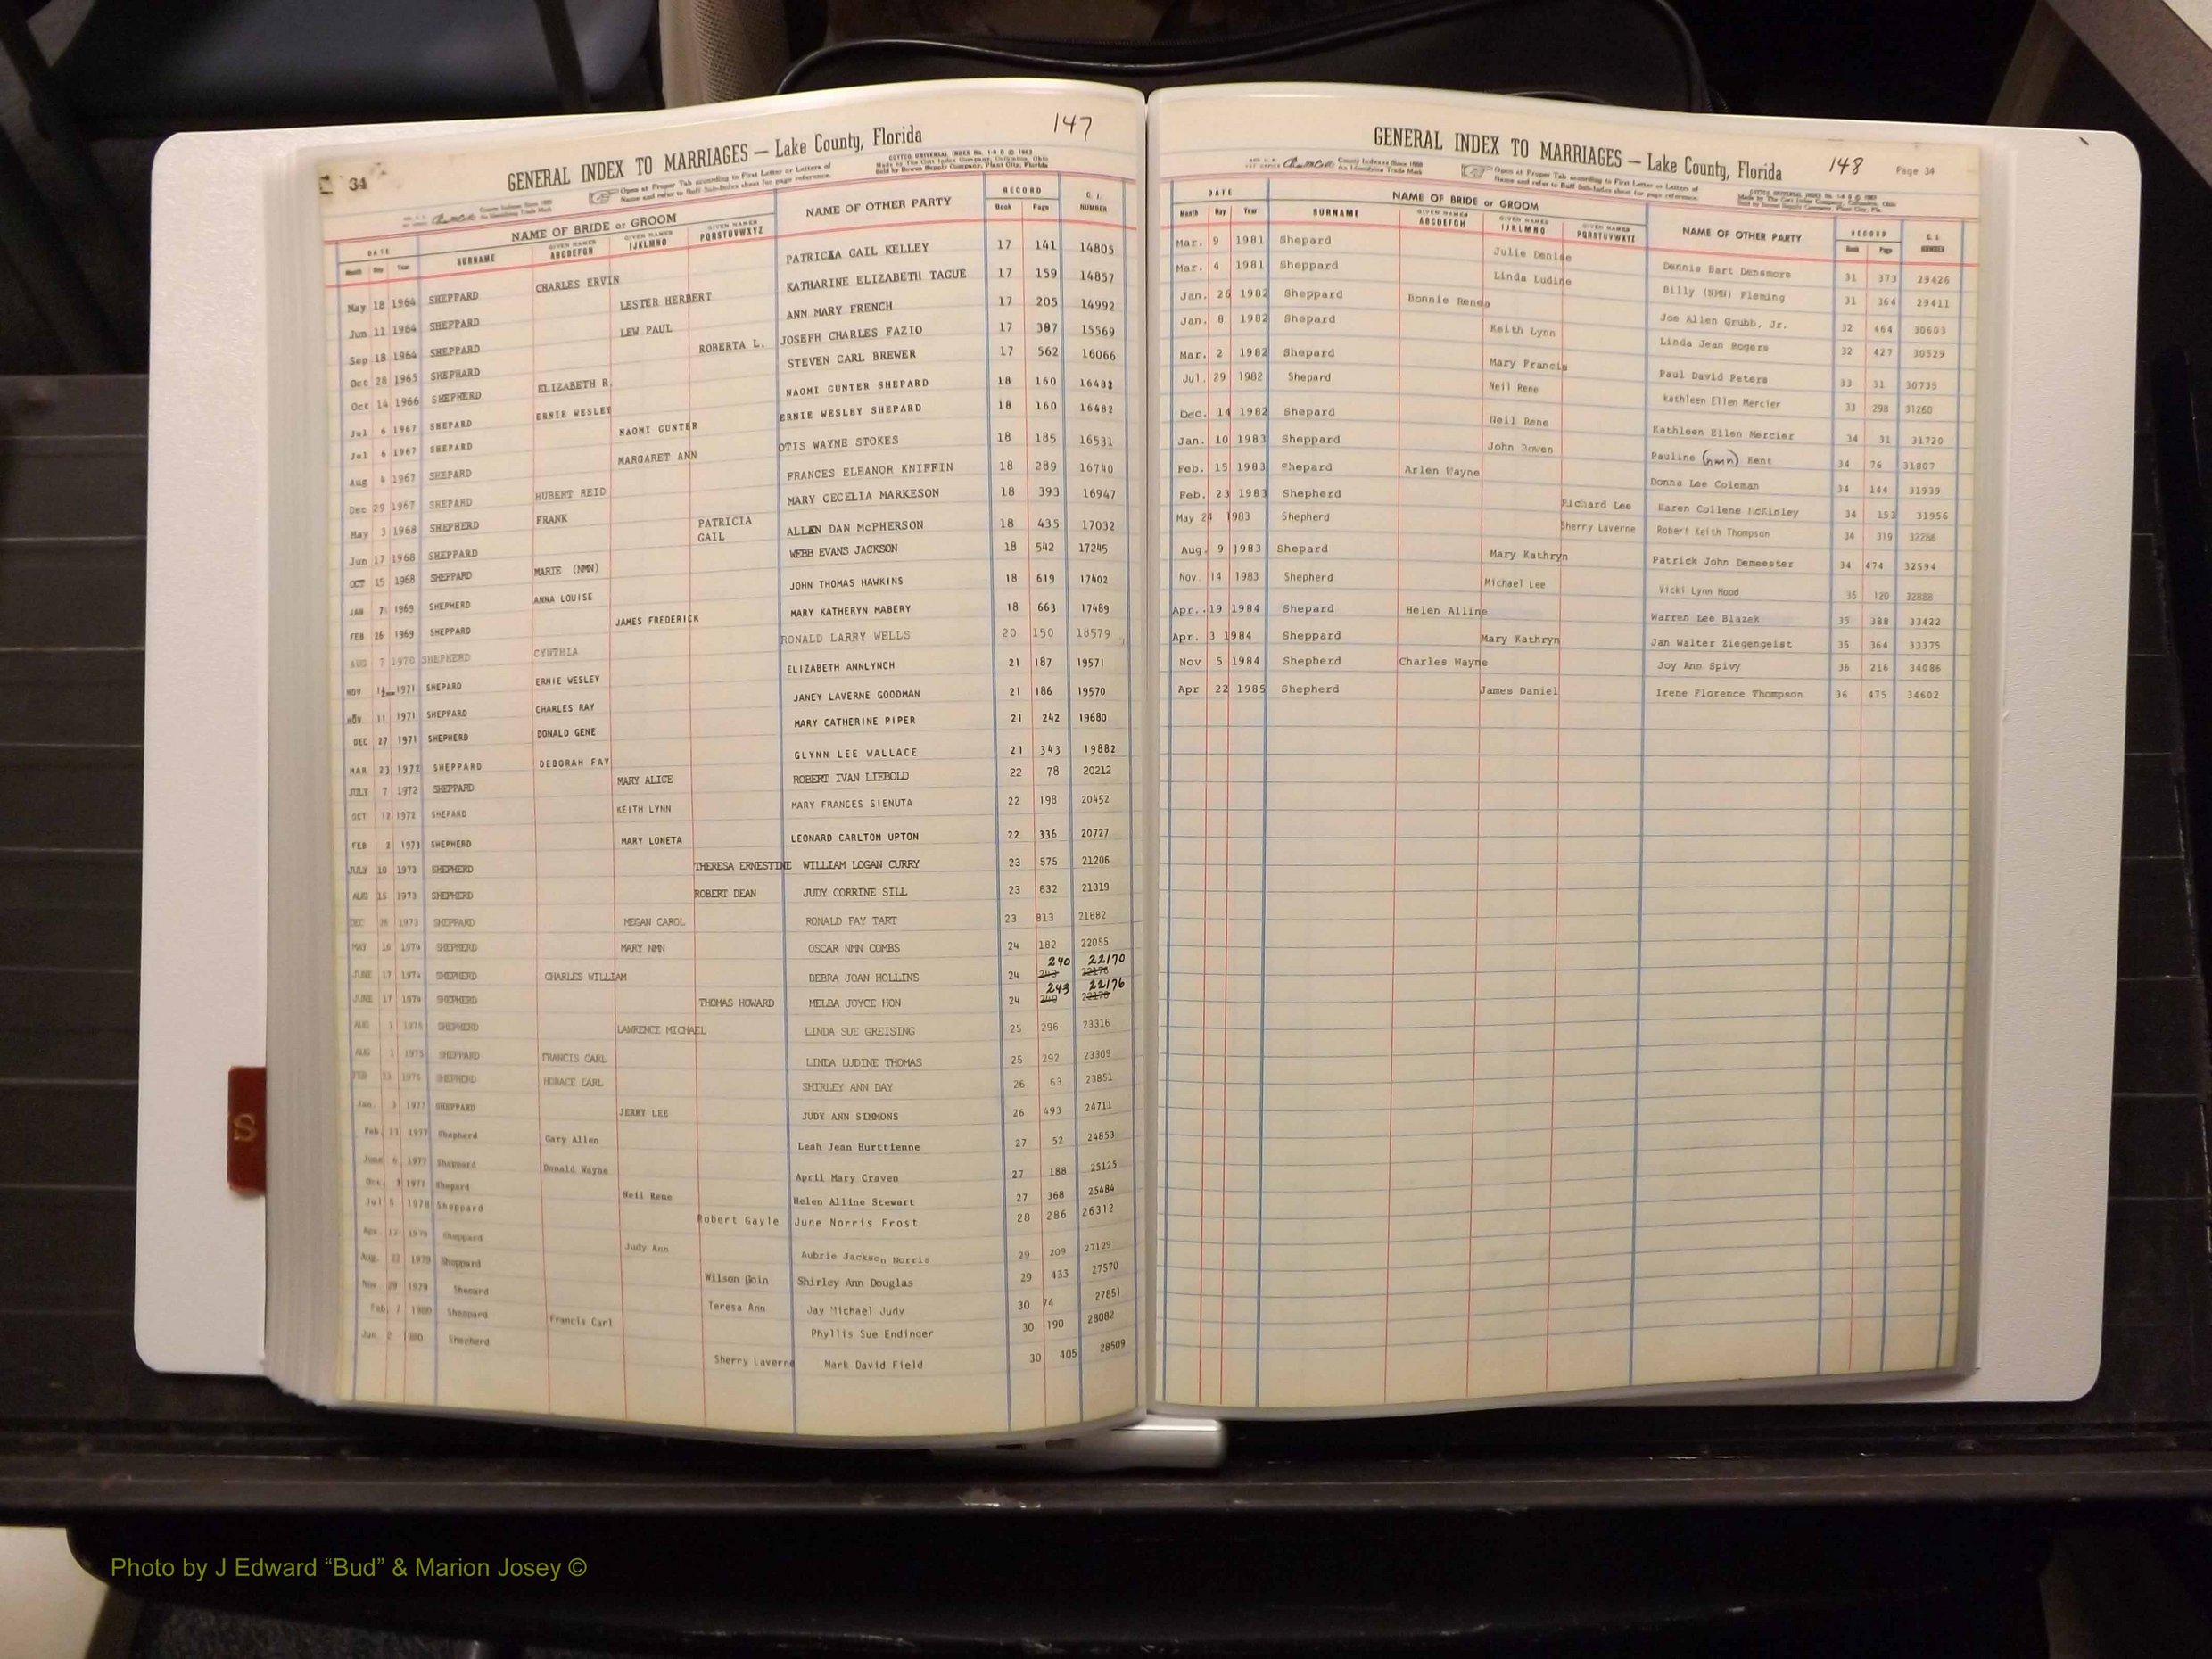 147
34
GENERAL INDEX TO MARRIAGES — Lake County, Florida
Open at Proper Tab according to First Letter or Letters of
Name and refer to Buff Sub-Index sheet for page reference.
COTT UNIVERSAL INDEX
DATE NAME OF BRIDE or GROOM NAME OF OTHER PARTY RECORD C. I. NUMBER
Month Day Year SURNAME GIVEN NAMES ABCDEFGH GIVEN NAMES IJKLMNO GIVEN NAMES PQRSTUVWXYZ Book Page
May 18 1964 SHEPPARD CHARLES ERVIN PATRICIA GAIL KELLEY 17 141 14805
Jun 11 1964 SHEPPARD LESTER HERBERT KATHARINE ELIZABETH TAGUE 17 159 14857
Sep 18 1964 SHEPPARD LEW PAUL ANN MARY FRENCH 17 205 14992
Oct 28 1965 SHEPHARD ROBERTA L. JOSEPH CHARLES FAZIO 17 387 15569
Oct 14 1966 SHEPHERD ELIZABETH R. STEVEN CARL BREWER 17 562 16066
Jul 6 1967 SHEPARD ERNIE WESLEY NAOMI GUNTER SHEPARD 18 160 16482
Jul 6 1967 SHEPARD NAOMI GUNTER ERNIE WESLEY SHEPARD 18 160 16482
Aug 4 1967 SHEPARD MARGARET ANN OTIS WAYNE STOKES 18 185 16531
Dec 29 1967 SHEPARD HUBERT REID FRANCES ELEANOR KNIFFIN 18 289 16740
May 3 1968 SHEPHERD FRANK MARY CECELIA MARKESON 18 393 16947
Jun 17 1968 SHEPPARD PATRICIA GAIL ALLEN DAN McPHERSON 18 435 17032
OCT 15 1968 SHEPPARD MARIE (NMN) WEBB EVANS JACKSON 18 542 17245
JAN 7 1969 SHEPHERD ANNA LOUISE JOHN THOMAS HAWKINS 18 619 17402
FEB 26 1969 SHEPPARD JAMES FREDERICK MARY KATHERYN MABERY 18 663 17489
AUG 7 1970 SHEPHERD CYNTHIA RONALD LARRY WELLS 20 150 18579
NOV 1971 SHEPARD ERNIE WESLEY ELIZABETH ANNLYNCH 21 187 19571
NOV 11 1971 SHEPPARD CHARLES RAY JANEY LAVERNE GOODMAN 21 186 19570
DEC 27 1971 SHEPHERD DONALD GENE MARY CATHERINE PIPER 21 242 19680
MAR 23 1972 SHEPPARD DEBORAH FAY GLYNN LEE WALLACE 21 343 19882
JULY 7 1972 SHEPPARD MARY ALICE ROBERT IVAN LIEBOLD 22 78 20212
OCT 12 1972 SHEPARD KEITH LYNN MARY FRANCES SIENUTA 22 198 20452
FEB 2 1973 SHEPHERD MARY LONETA LEONARD CARLTON UPTON 22 336 20727
JULY 10 1973 SHEPHERD THERESA ERNESTINE WILLIAM LOGAN CURRY 23 575 21206
AUG 15 1973 SHEPHERD ROBERT DEAN JUDY CORRINE SILL 23 632 21319
DEC 1973 SHEPPARD MEGAN CAROL RONALD FAY TART 23 813 21682
MAY 16 1974 SHEPHERD MARY NMN OSCAR NMN COMBS 24 182 22055
JUNE 17 1974 SHEPHERD CHARLES WILLIAM DEBRA JOAN HOLLINS 24 240 22170
JUNE 17 1974 SHEPHERD THOMAS HOWARD MELBA JOYCE HON 24 243 22176
AUG 1 1975 SHEPHERD LAWRENCE MICHAEL LINDA SUE GREISING 25 296 23316
AUG 1 1975 SHEPPARD FRANCIS CARL LINDA LUDINE THOMAS 25 292 23309
FEB 23 1976 SHEPHERD HORACE EARL SHIRLEY ANN DAY 26 63 23851
Jan. 3 1977 SHEPPARD JERRY LEE JUDY ANN SIMMONS 26 493 24711
Feb. 23 1977 Shepherd Gary Allen Leah Jean Hurttienne 27 52 24853
June 6 1977 Sheppard Donald Wayne April Mary Craven 27 188 25125
Oct. 3 1977 Shepard Neil Rene Helen Alline Stewart 27 368 25484
Jul 5 1978 Sheppard Robert Gayle June Norris Frost 28 286 26312
Apr. 12 1979 Sheppard Judy Ann Aubrie Jackson Norris 29 209 27129
Aug. 22 1979 Sheppard Wilson Goin Shirley Ann Douglas 29 433 27570
Nov 29 1979 Shepard Teresa Ann Jay Michael Judy 30 74 27851
Feb. 7 1980 Sheppard Francis Carl Phyllis Sue Endinger 30 190 28082
Jun. 2 1980 Shepherd Sherry Laverne Mark David Field 30 405 28509
S
GENERAL INDEX TO MARRIAGES — Lake County, Florida
148
Page 34
Open at Proper Tab according to First Letter or Letters of
Name and refer to Buff Sub-Index sheet for page reference.
DATE NAME OF BRIDE or GROOM NAME OF OTHER PARTY RECORD C. I. NUMBER
Month Day Year SURNAME GIVEN NAMES ABCDEFGH GIVEN NAMES IJKLMNO GIVEN NAMES PQRSTUVWXYZ Book Page
Mar. 9 1981 Shepard Julie Denise Dennis Bart Densmore 31 373 29426
Mar. 4 1981 Sheppard Linda Ludine Billy (NMN) Fleming 31 364 29411
Jan. 26 1982 Sheppard Bonnie Renea Joe Allen Grubb, Jr. 32 464 30603
Jan. 8 1982 Shepard Keith Lynn Linda Jean Rogers 32 427 30529
Mar. 2 1982 Shepard Mary Francis Paul David Peters 33 31 30735
Jul. 29 1982 Shepard Neil Rene Kathleen Ellen Mercier 33 298 31260
Dec. 14 1982 Shepard Neil Rene Kathleen Ellen Mercier 34 31 31720
Jan. 10 1983 Sheppard John Bowen Pauline (nmn) Kent 34 76 31807
Feb. 15 1983 Shepard Arlen Wayne Donna Lee Coleman 34 144 31939
Feb. 23 1983 Shepherd Richard Lee Karen Collene McKinley 34 153 31956
May 24 1983 Shepherd Sherry Laverne Robert Keith Thompson 34 319 32286
Aug. 9 1983 Shepard Mary Kathryn Patrick John Demeester 34 474 32594
Nov. 14 1983 Shepherd Michael Lee Vicki Lynn Hood 35 120 32888
Apr. 19 1984 Shepard Helen Alline Warren Lee Blazek 35 388 33422
Apr. 3 1984 Sheppard Mary Kathryn Jan Walter Ziegengeist 35 364 33375
Nov 5 1984 Shepherd Charles Wayne Joy Ann Spivy 36 216 34086
Apr 22 1985 Shepherd James Daniel Irene Florence Thompson 36 475 34602
Photo by J Edward “Bud” & Marion Josey ©